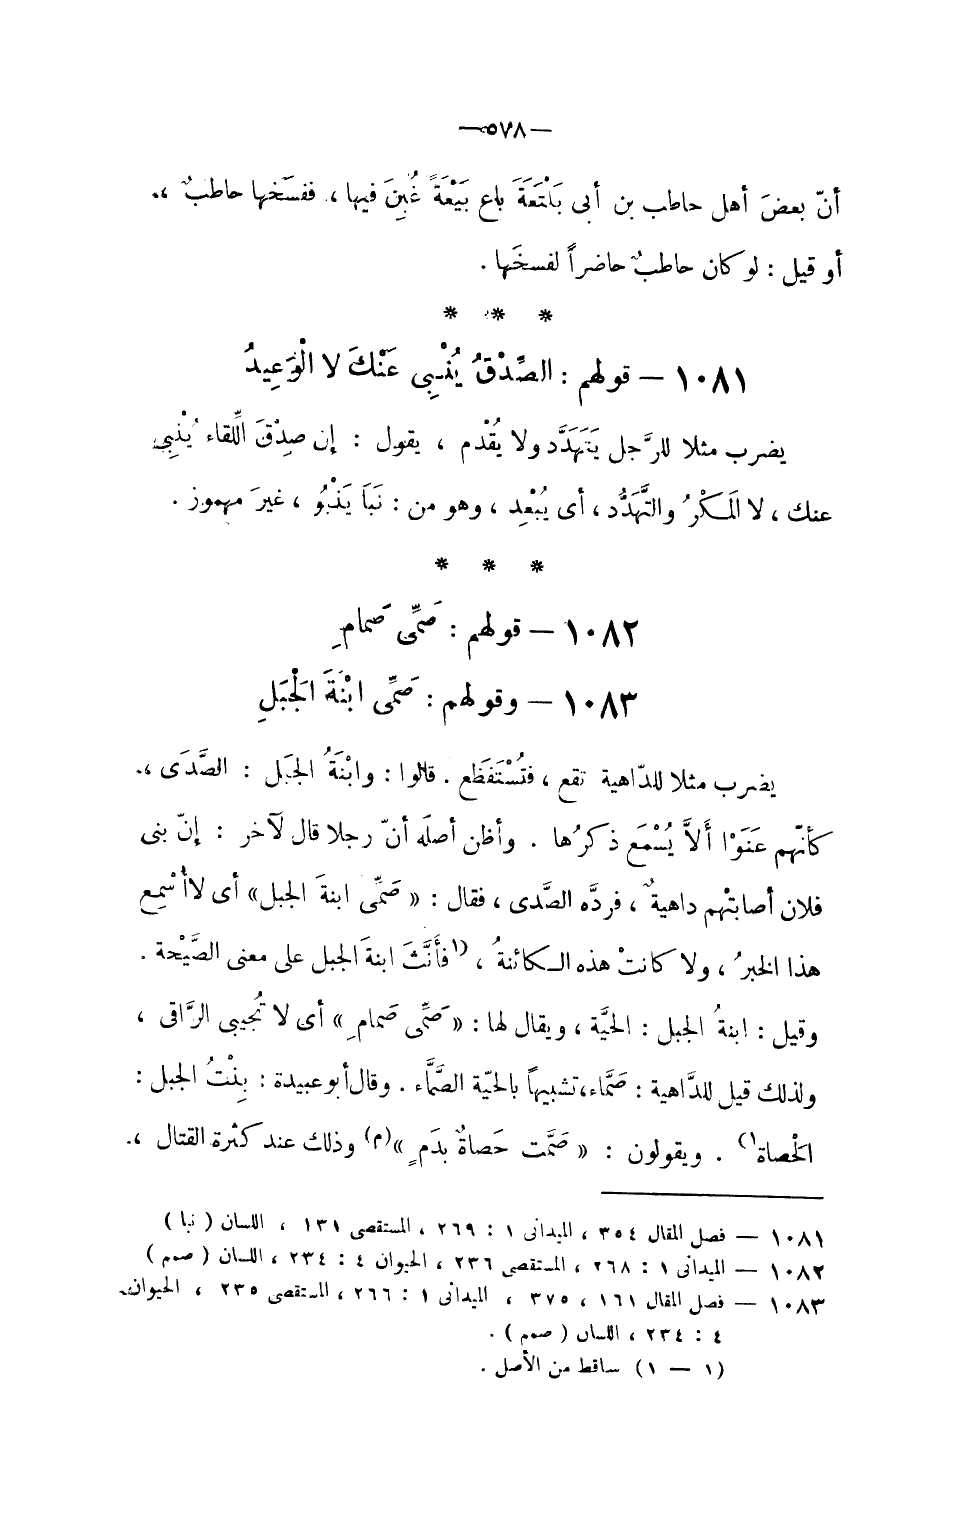 — ٥٧٨ —
أنّ بعضَ أهل حاطب بن أبى بَلْتَعَةَ باع بَيْعَةً غُبِنَ فيها ، ففسَخها حاطبٌ ،
أو قيل : لو كان حاطبٌ حاضراً لفسخَها .
* * *
١٠٨١ – قولهم : الصِّدْقُ يُنْـبِى عَنْكَ لا الْوَعِيدُ
يضرب مثلا للرَّجل يَتَهَدَّد ولا يُقْدم ، يقول : إن صِدْقَ اللِّقاء يُنْبِى
عنك ، لا المَـكْرُ والتَّهَدُّد ، أى يُبْعِد ، وهو من : نَبَا يَنْبُو ، غيرَ مهموز .
* * *
١٠٨٢ – قولهم : صَمِّى صَمامِ
١٠٨٣ – وقولهم : صَمِّى ابْنَةَ الْجَبَلِ
يضرب مثلا للدّاهية تقع ، فتُسْتَفَظَع . قالوا : وابْنَةُ الجبَل : الصَّدَى ،
كأنّهم عَنَوْا أَلاَّ يُسْمَع ذكرُها . وأظن أصلَه أنّ رجلا قال لآخر : إنّ بنى
فلان أصابتْهم داهيةٌ ، فردَّه الصَّدى ، فقال : « صَمِّى ابنةَ الجبل » أى لا أُسْمِع
هذا الخبرُ ، ولا كانتْ هذه الـكائنةُ ، (١ فأَنَّثَ ابنةَ الجبل على معنى الصَّيْحة .
وقيل : ابنةُ الجبل : الحيَّة ، ويقال لها : « صَمِّى صَمامِ » أى لا تُجيبى الرَّاقى ،
ولذلك قيل للدَّاهية : صَمَّاء، تشبيهاً بالحيّة الصَّمَّاء . وقال أبو عبيدة : بِنْتُ الجبل :
الْحصاة ١) . ويقولون : « صَمَّت حَصاةٌ بدَمٍ » (م) وذلك عند كثرة القتال ،
١٠٨١ – فصل المقال ٣٥٤ ، الميدانى ١ : ٢٦٩ ، المستقصى ١٣١ ، اللسان ( نبا )
١٠٨٢ – الميدانى ١ : ٢٦٨ ، المستقصى ٢٣٦ ، الحيوان ٤ : ٢٣٤ ، اللسان ( صمم )
١٠٨٣ – فصل المقال ١٦١ ، ٣٧٥ ، الميدانى ١ : ٢٦٦ ، المستقصى ٢٣٥ ، الحيوان
٤ : ٢٣٤ ، اللسان ( صمم ) .
(١ – ١) ساقط من الأصل .